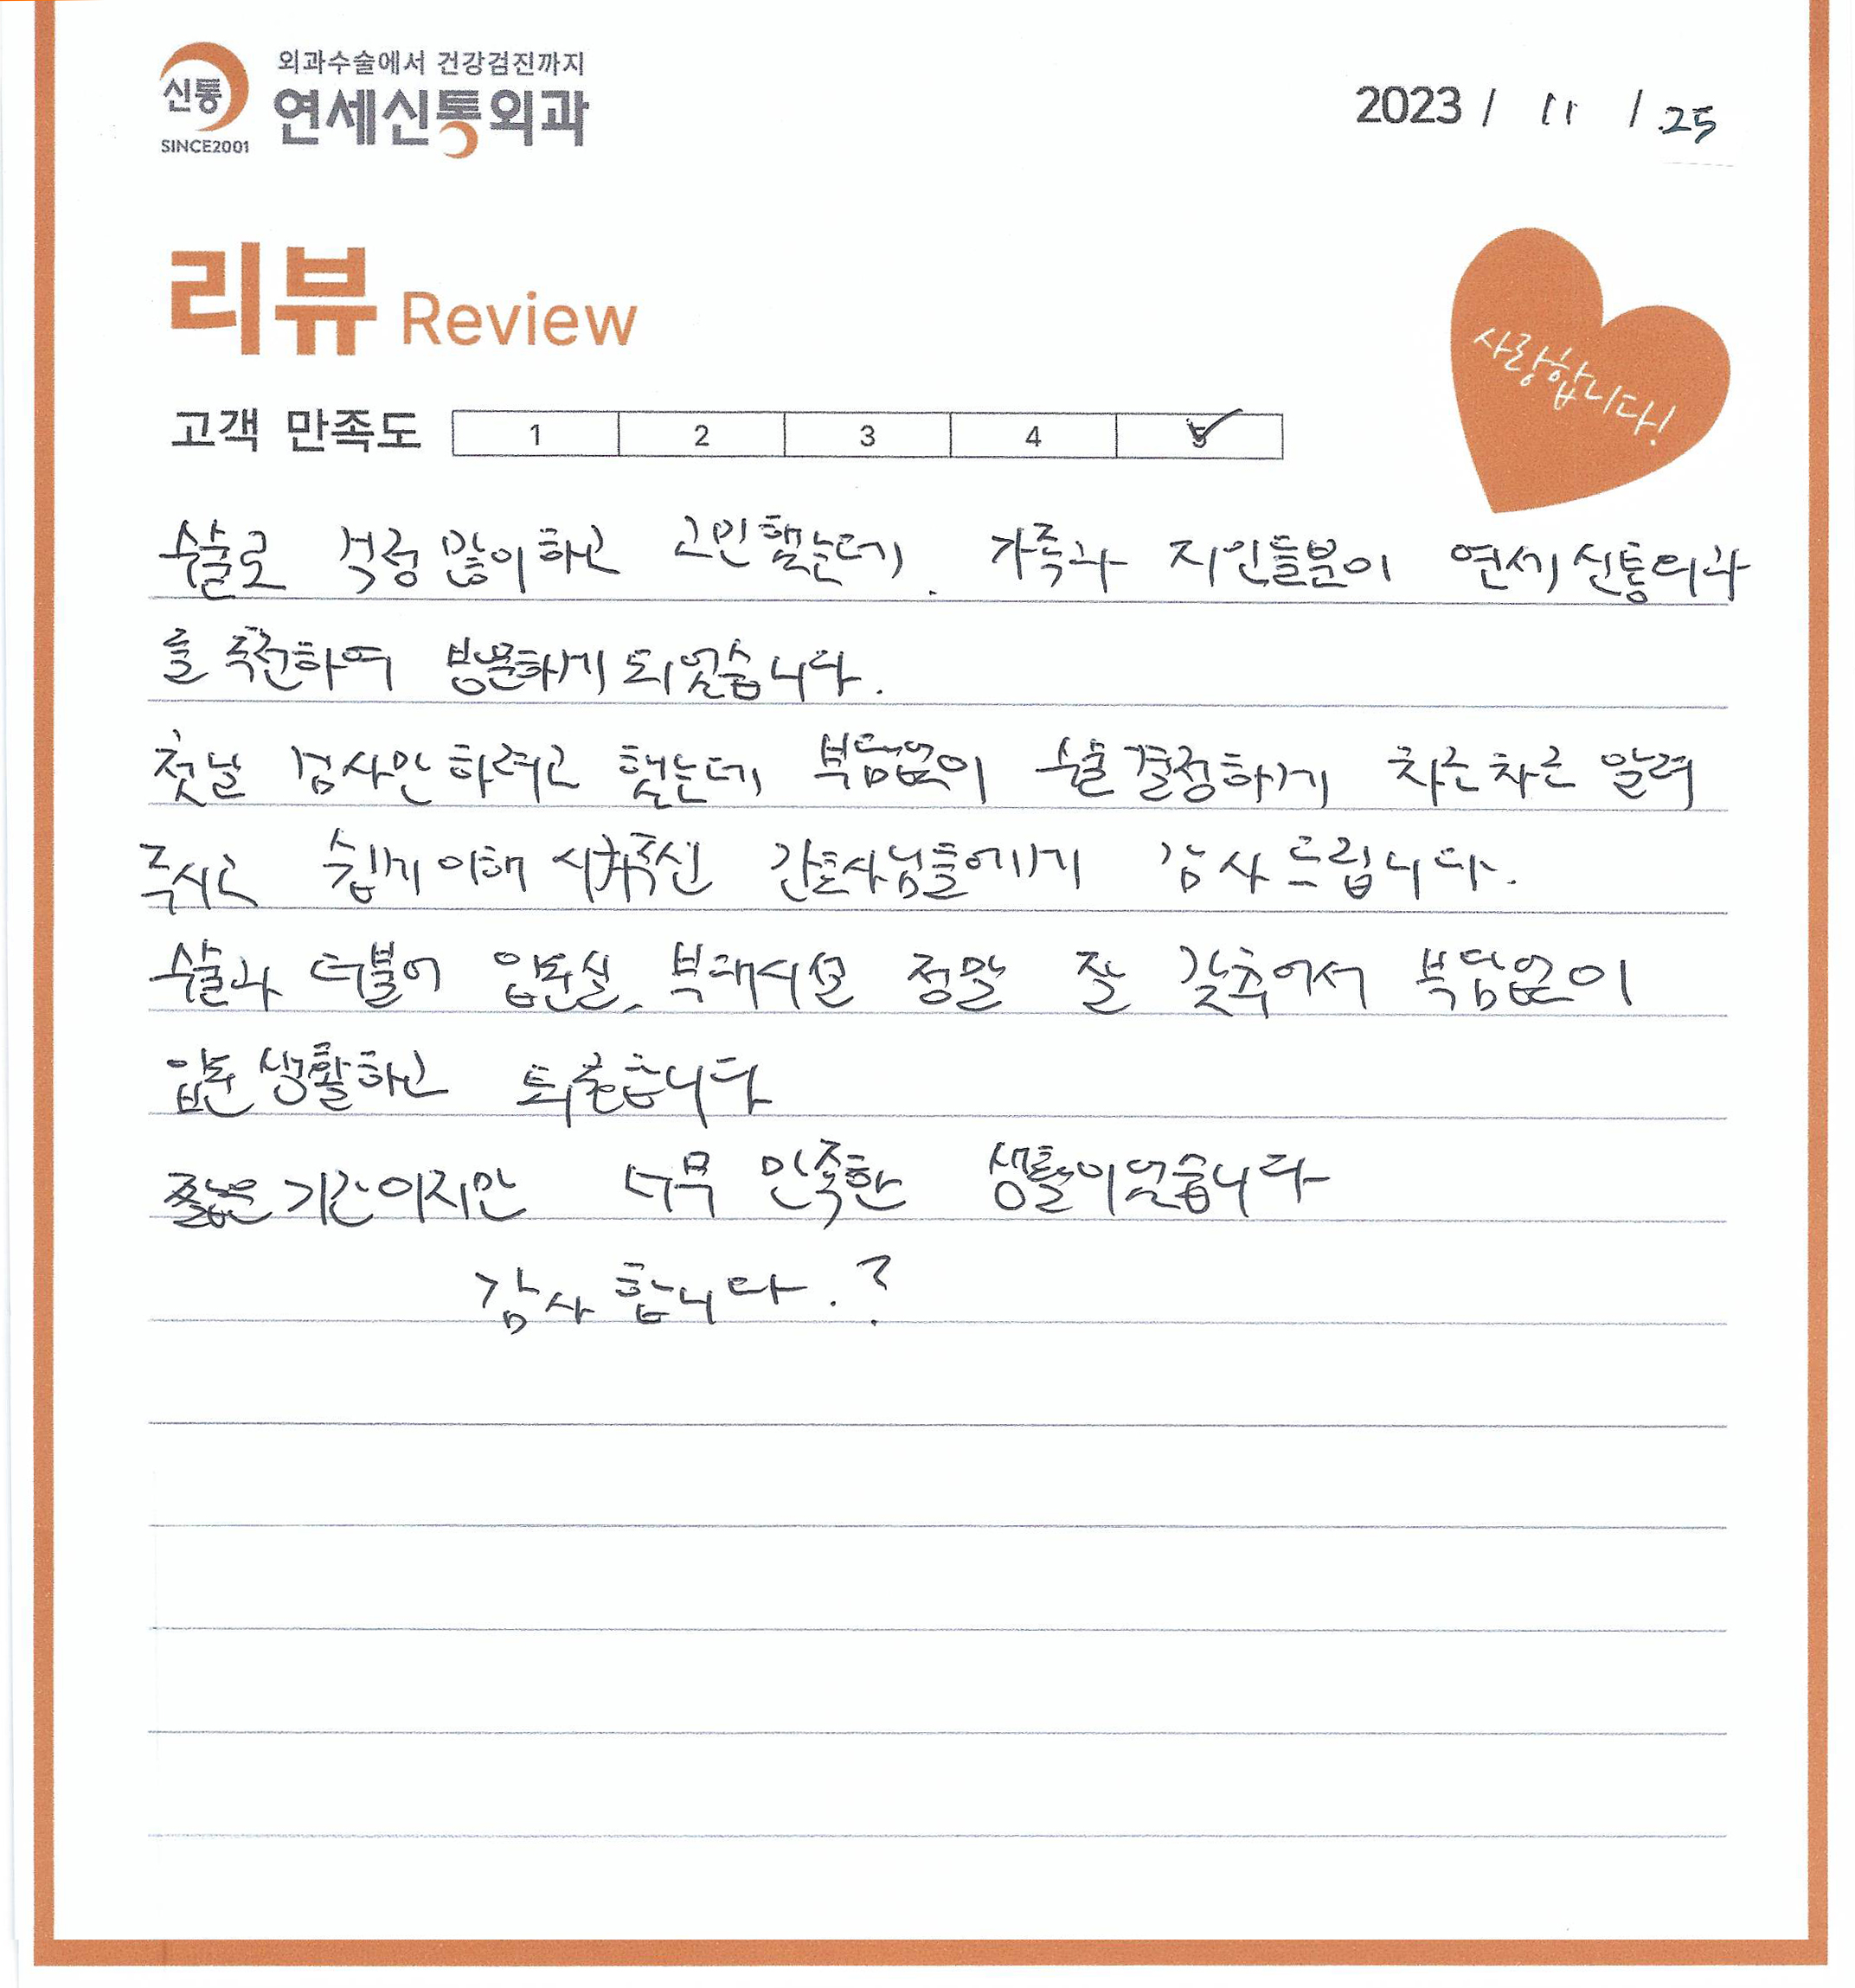 외과수술에서 건강검진까지
신통 연세신통외과
SINCE2001
2023 / 11 / .25
리뷰 Review
사랑합니다!
고객 만족도 1 2 3 4 5
수술로 걱정 많이하고 고민했는데. 가족과 지인들분이 연세신통외과
를 추천하여 방문하게 되었습니다.
첫날 검사만 하려고 했는데 부담없이 수술결정하게 차근차근 알려
주시고 쉽게 이해 시켜주신 간호사님들에게 감사드립니다.
수술과 더불어 입원실, 부대시설 정말 잘 갖추어서 부담없이
입원 생활하고 퇴원합니다
짧은 기간이지만 너무 만족한 생활이었습니다
감사합니다.?